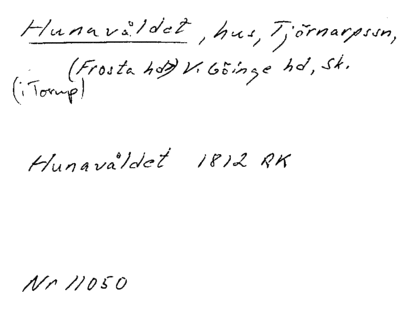 Hunavåldet, hus, Tjörnarpssn,
(Frosta hd) V. Göinge hd, Sk.
(i Torup)
Hunavåldet 1812 RK
Nr 11050